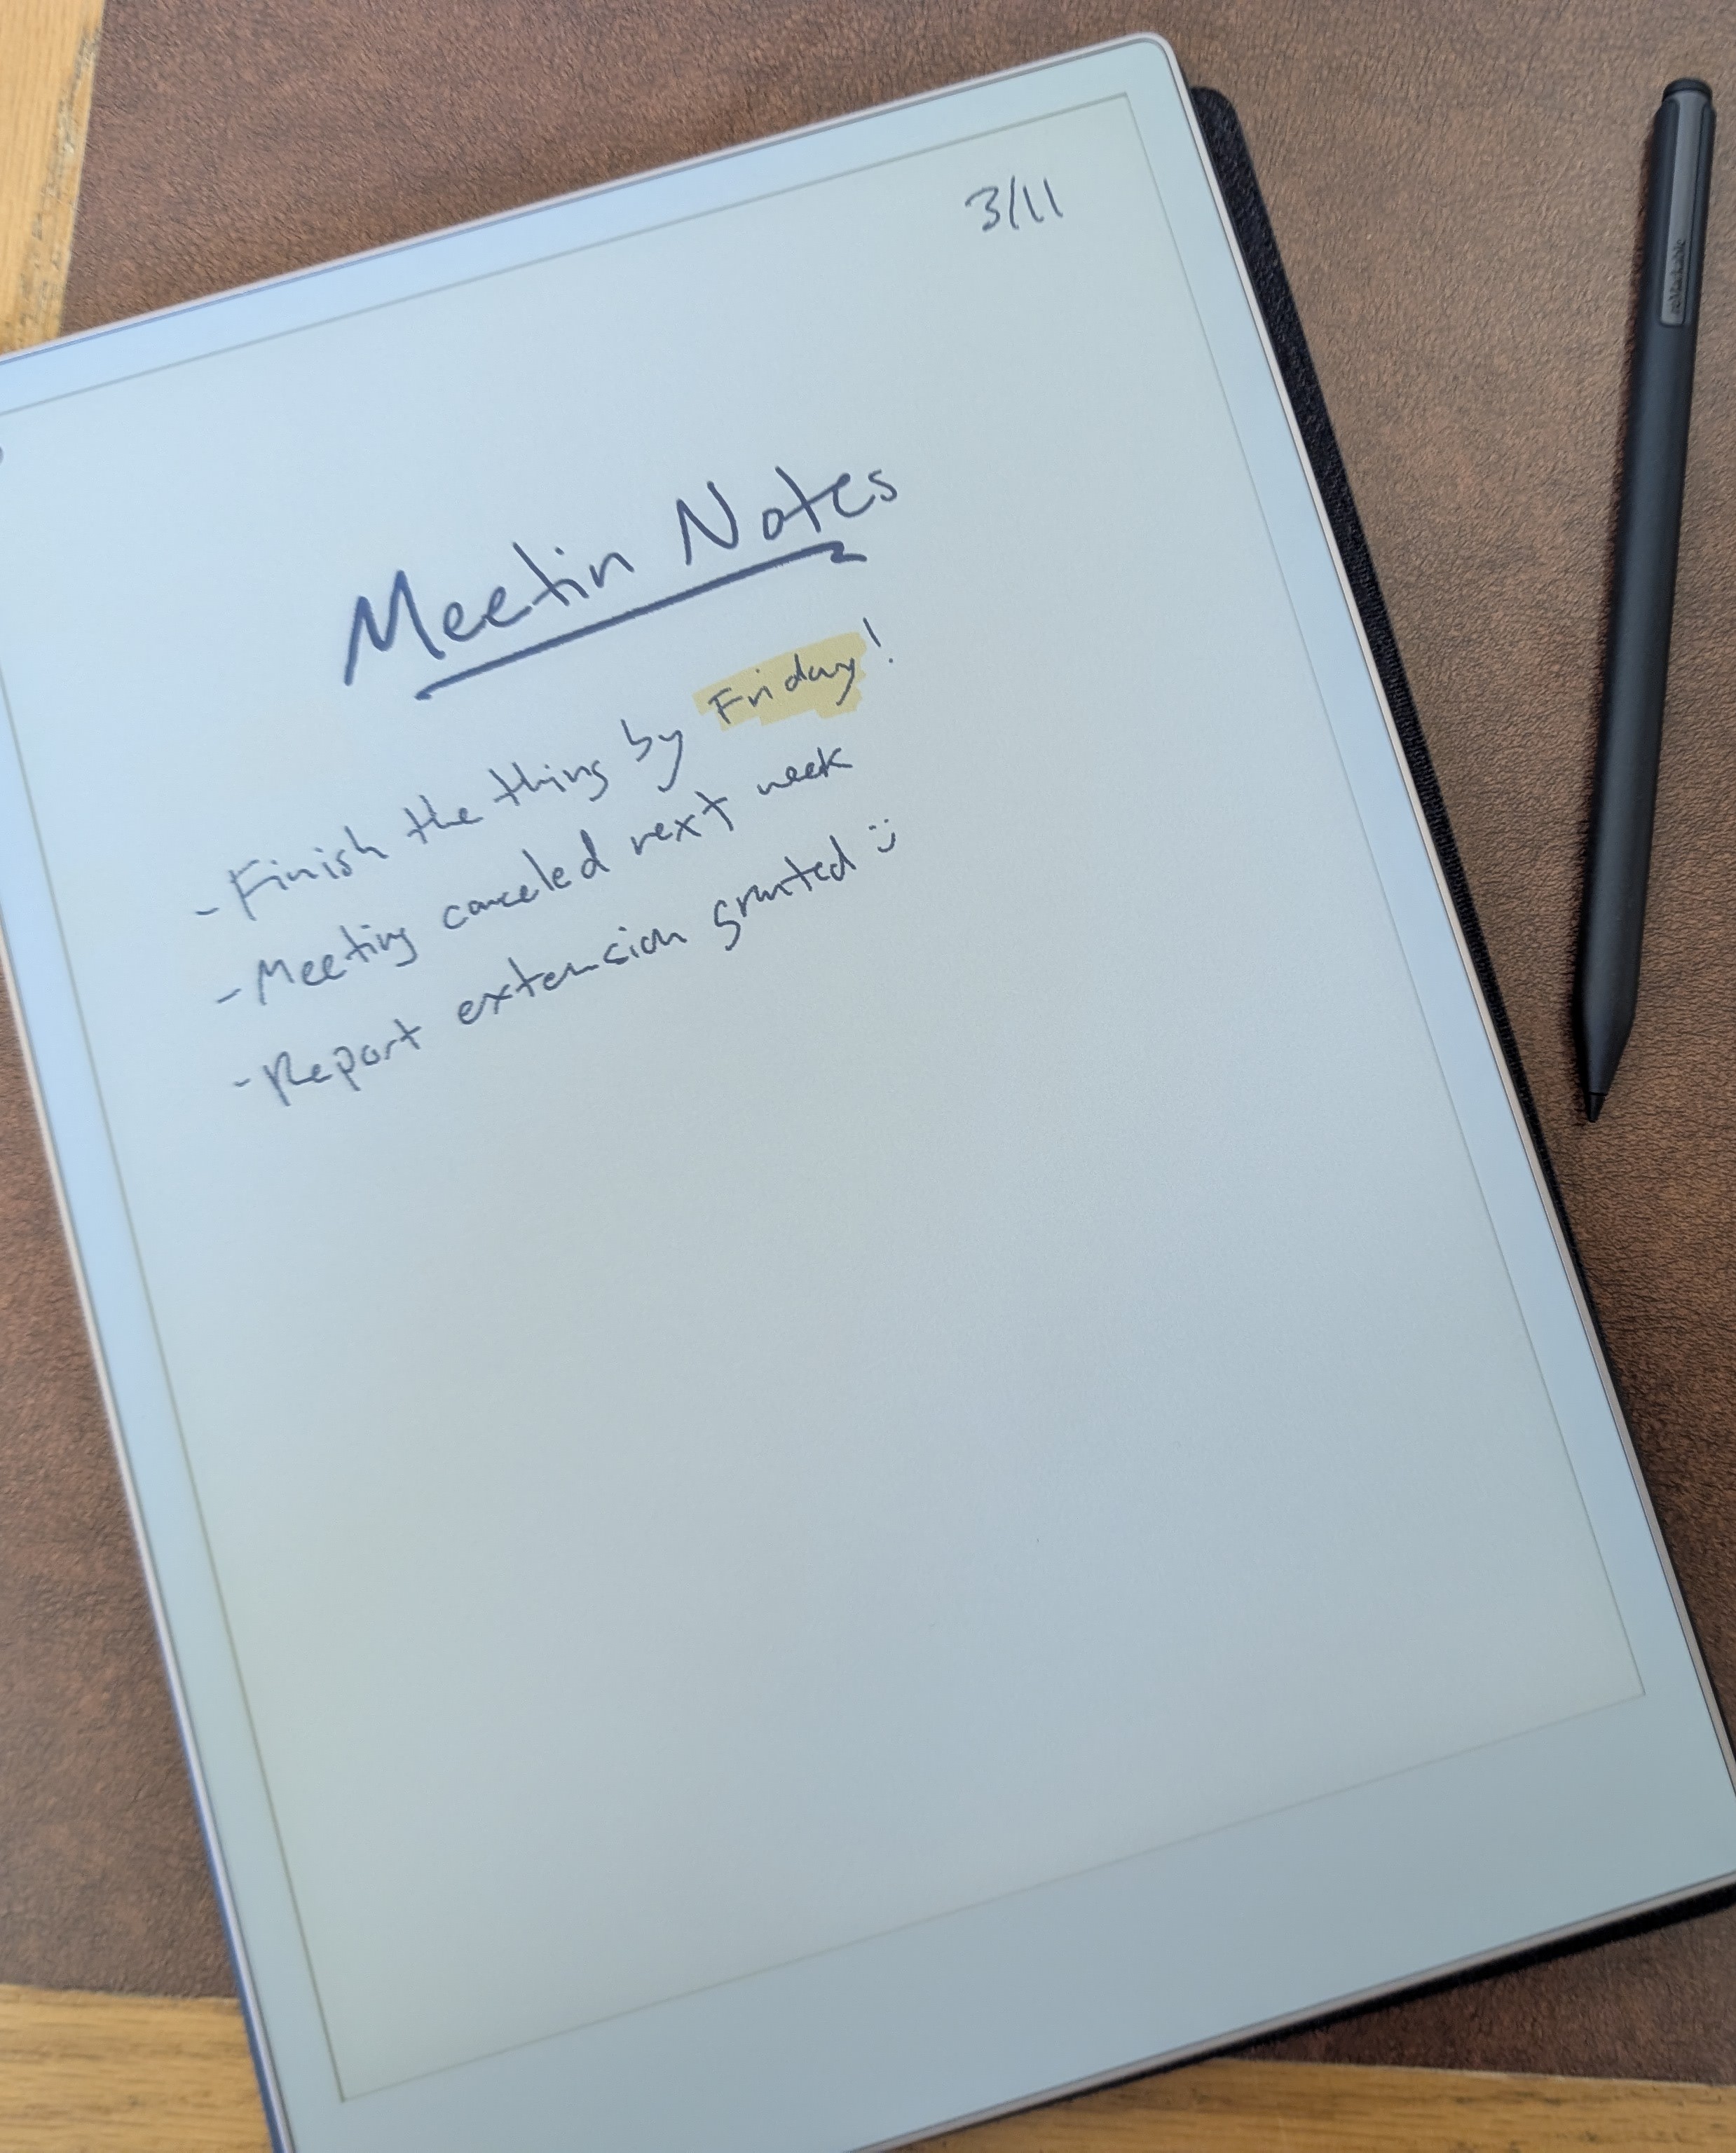 3/11
Meetin Notes
- Finish the thing by Friday!
- Meeting canceled next week
- Report extension granted :)
reMarkable